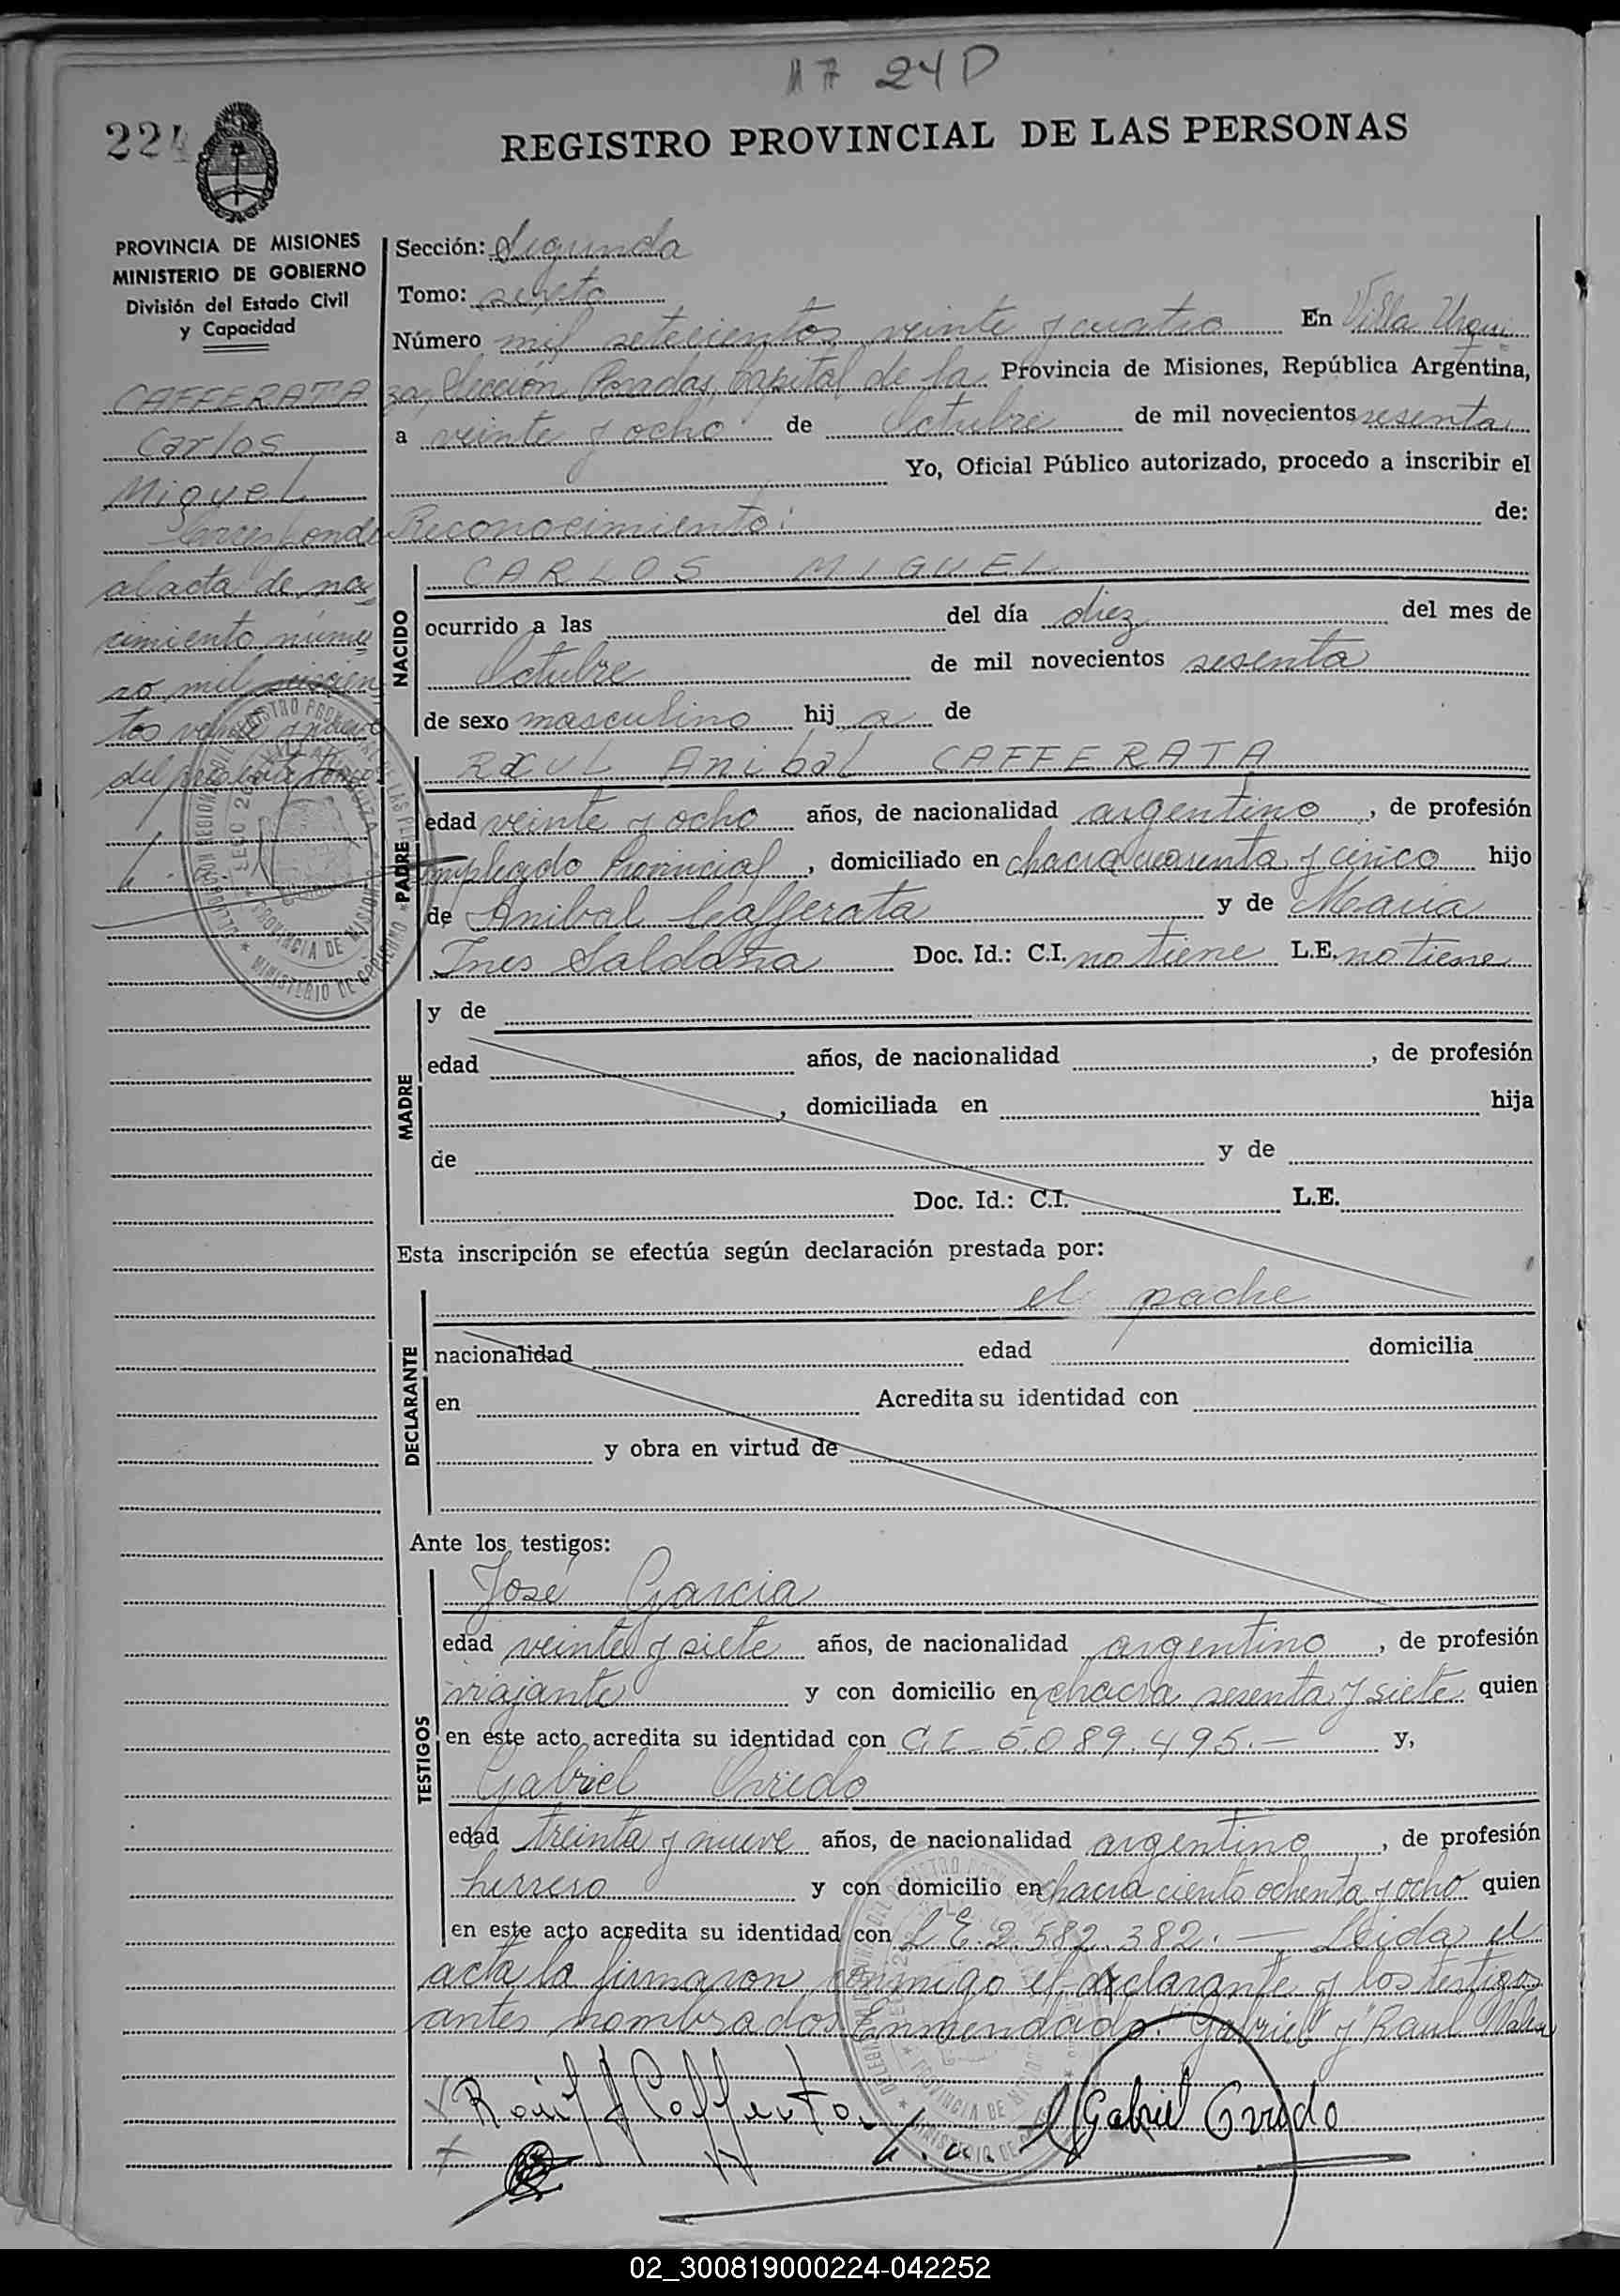 24 D
224
REGISTRO PROVINCIAL DE LAS PERSONAS
PROVINCIA DE MISIONES
MINISTERIO DE GOBIERNO
División del Estado Civil
y Capacidad
CAFFERATA
Carlos
Miguel
Corresponde
al acta de na
cimiento núme
ro mil
tos
del
Sección: Segunda
Tomo: sexto
Número mil setecientos veinte y cuatro En Villa Urqui
za, Sección Posadas, Capital de la Provincia de Misiones, República Argentina,
a veinte y ocho de Octubre de mil novecientos sesenta
Yo, Oficial Público autorizado, procedo a inscribir el
Reconocimiento: de:
NACIDO
CARLOS MIGUEL
ocurrido a las del día diez del mes de
Octubre de mil novecientos sesenta
de sexo masculino hij o de
PADRE
RAUL Anibal CAFFERATA
edad veinte y ocho años, de nacionalidad argentino, de profesión
empleado Provincial, domiciliado en chacra cuarenta y cinco hijo
de Anibal Cafferata y de Maria
Ines Saldaña Doc. Id.: C.I. no tiene L.E. no tiene
MADRE
y de
edad años, de nacionalidad , de profesión
, domiciliada en hija
de y de
Doc. Id.: C.I. L.E.
Esta inscripción se efectúa según declaración prestada por:
DECLARANTE
el padre
nacionalidad edad domicilia
en Acredita su identidad con
y obra en virtud de
Ante los testigos:
TESTIGOS
José Garcia
edad veinte y siete años, de nacionalidad argentino, de profesión
viajante y con domicilio en chacra sesenta y siete quien
en este acto acredita su identidad con C.I. 5.089.495.— y,
Gabriel Oviedo
edad treinta y nueve años, de nacionalidad argentino, de profesión
herrero y con domicilio en chacra ciento ochenta y ocho quien
en este acto acredita su identidad con L.E. 2.582.382.— Leida el
acta la firmaron conmigo el declarante y los testigos
antes nombrados. Enmendado: "Gabriel" y "Raul"
Raúl A Cafferata
Gabriel Oviedo
02_300819000224-042252